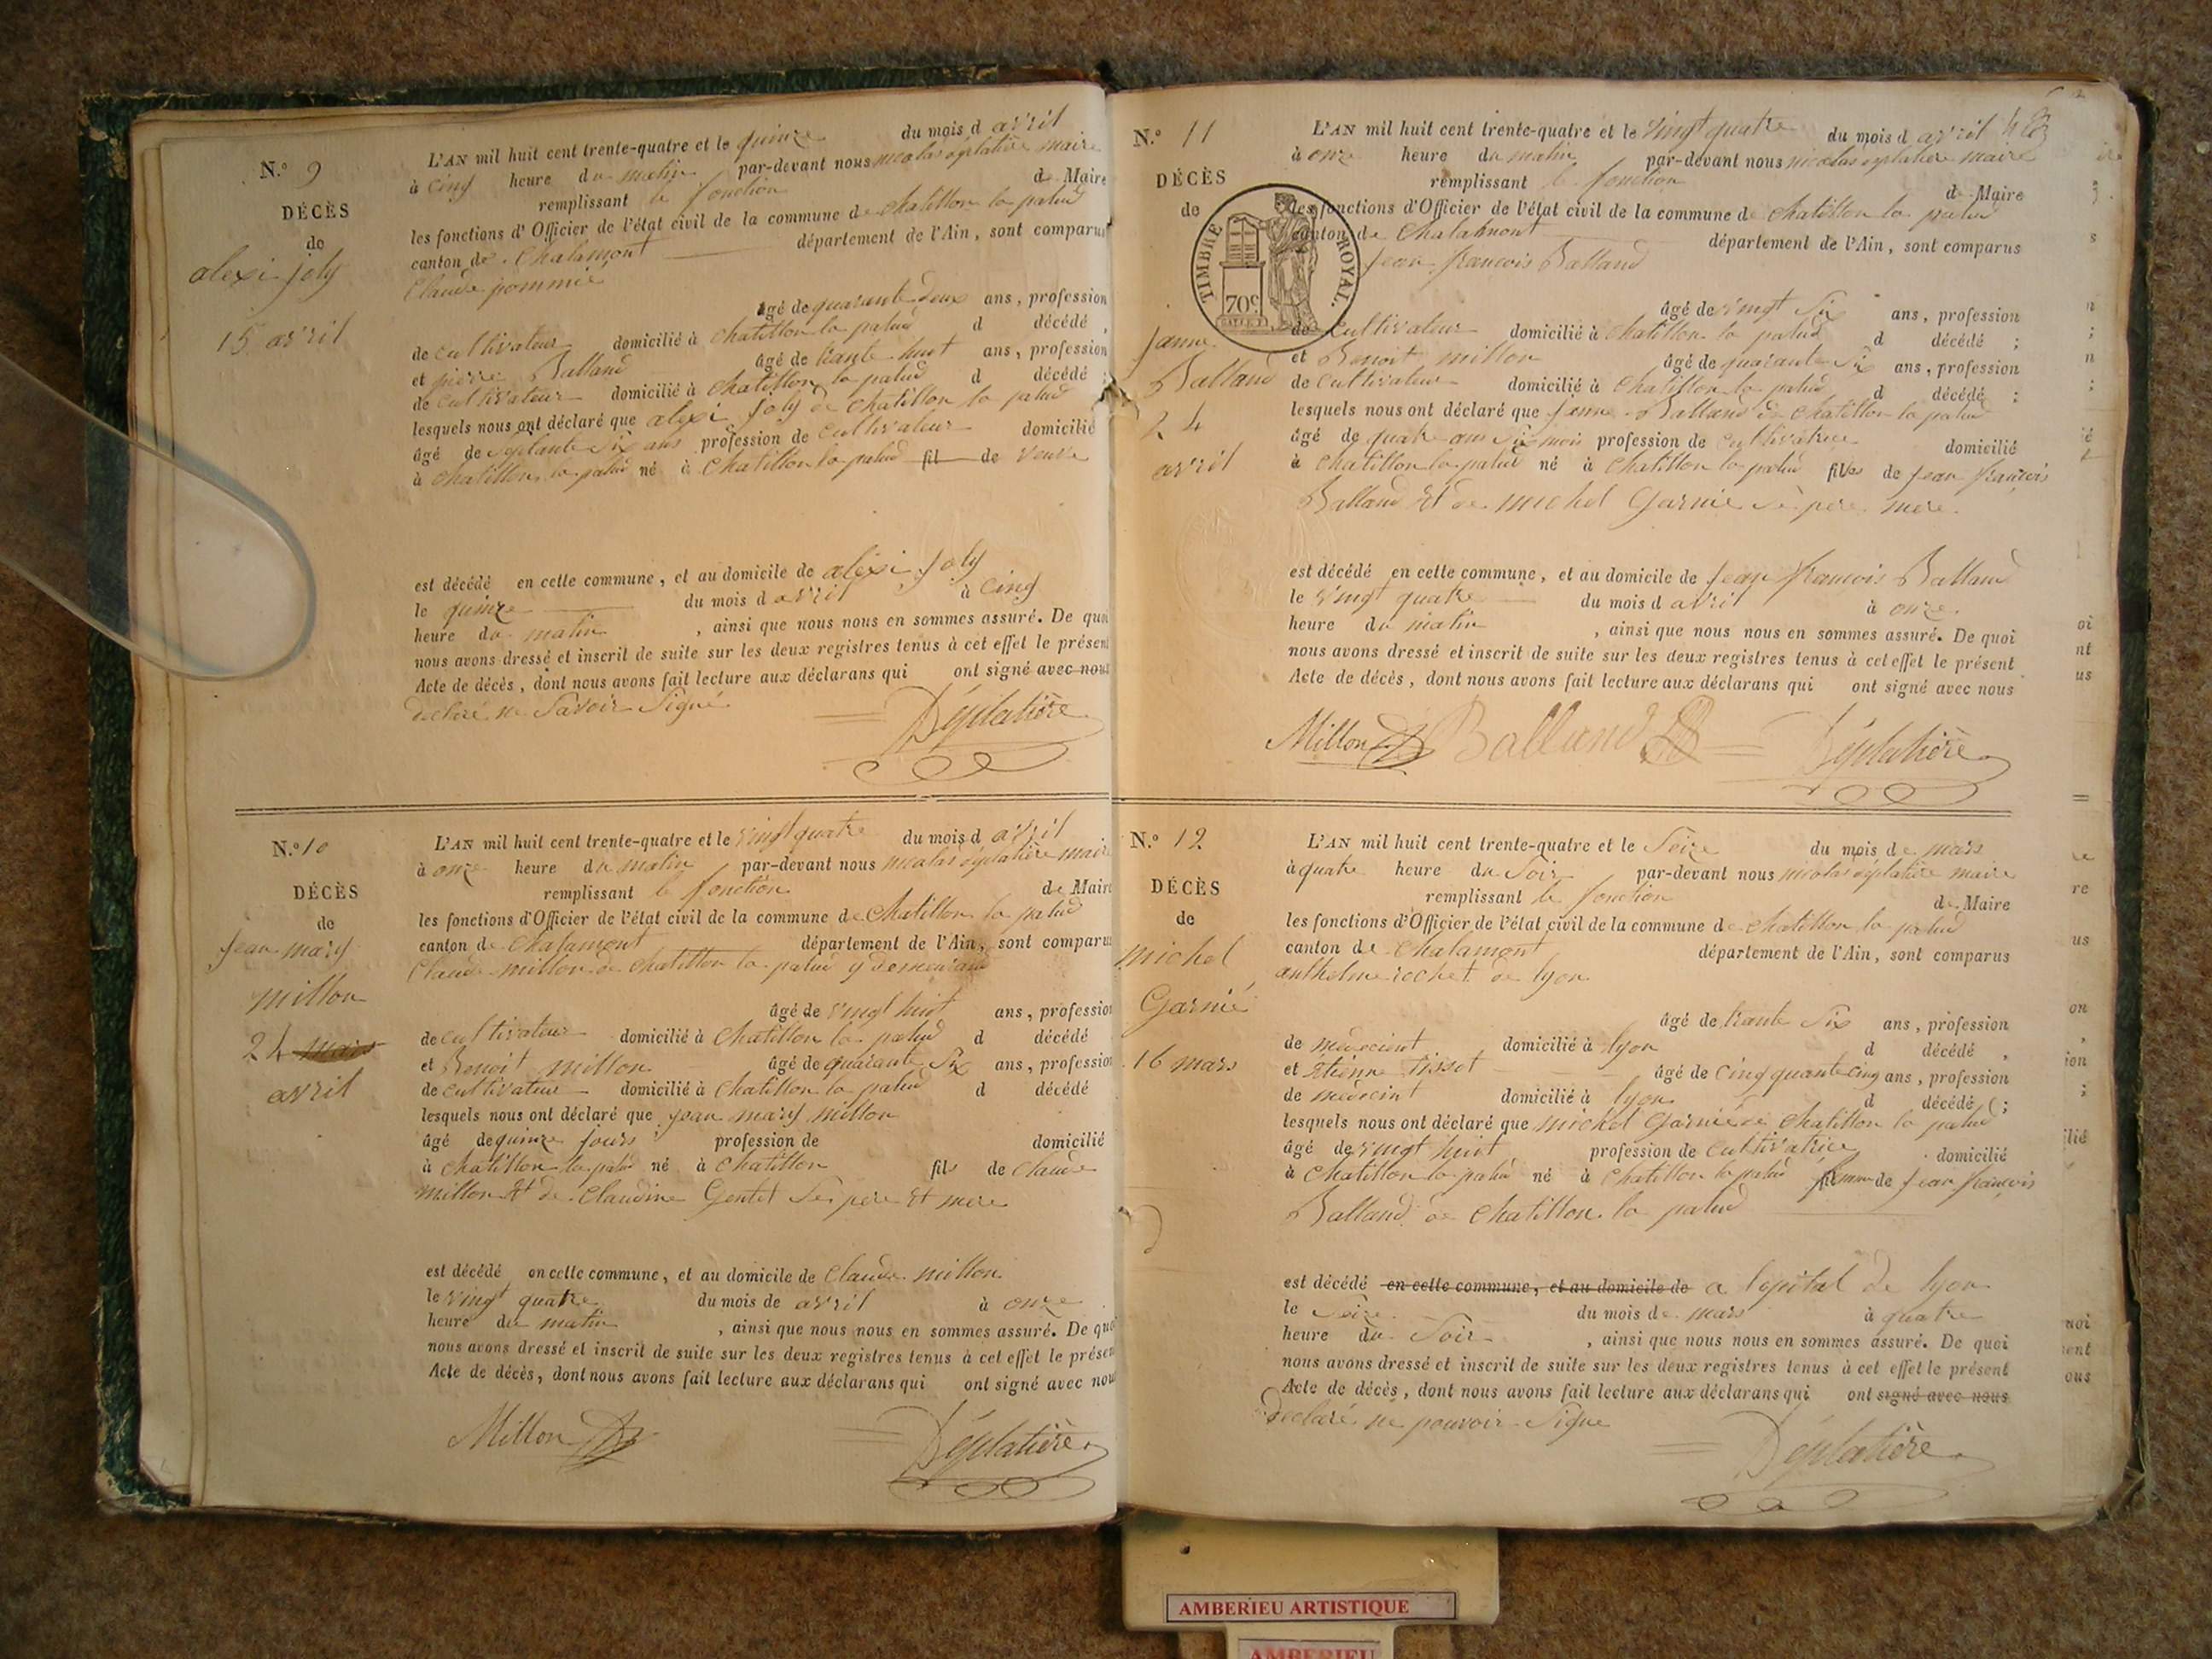 N.º 9
DÉCÈS
de
alexi joly
15 avril
L'AN mil huit cent trente-quatre et le quinze du mois d avril
à cinq heure du matin par-devant nous nicolas déplatière maire
remplissant le fonction de Maire
les fonctions d'Officier de l'état civil de la commune de chatillon la palud
canton de Chalamont département de l'Ain, sont comparus
Claude pommié
âgé de quarante deux ans, profession
de cultivateur domicilié à chatillon la palud d décédé,
et pierre Balland âgé de trante huit ans, profession
de cultivateur domicilié à chatillon la palud d décédé;
lesquels nous ont déclaré que alexi joly de chatillon la palud
âgé de septante six ans profession de cultivateur domicilié
à chatillon la palud né à chatillon la palud fil de veuve
est décédé en cette commune, et au domicile de alexi joly
le quinze du mois d avril à cinq
heure du matin, ainsi que nous nous en sommes assuré. De quoi
nous avons dressé et inscrit de suite sur les deux registres tenus à cet effet le présent
Acte de décès, dont nous avons fait lecture aux déclarans qui ont signé avec nous
declaré ne savoir signé
Déplatière
N.º 10
DÉCÈS
de
jean mary
millon
24 mars
avril
L'AN mil huit cent trente-quatre et le vingt quatre du mois d avril
à onze heure du matin par-devant nous nicolas déplatière maire
remplissant le fonction de Maire
les fonctions d'Officier de l'état civil de la commune de chatillon la palud
canton de Chalamont département de l'Ain, sont comparus
Claude millon de chatillon la palud y demeurant
âgé de vingt huit ans, profession
de cultivateur domicilié à chatillon la palud d décédé
et Benoit millon âgé de quarante six ans, profession
de cultivateur domicilié à chatillon la palud d décédé
lesquels nous ont déclaré que jean mary millon
âgé de quinze jours profession de domicilié
à chatillon la palud né à chatillon fils de claude
millon et de claudine Gentet ses pere et mere
est décédé en cette commune, et au domicile de claude millon
le vingt quatre du mois de avril à onze
heure du matin, ainsi que nous nous en sommes assuré. De quoi
nous avons dressé et inscrit de suite sur les deux registres tenus à cet effet le présent
Acte de décès, dont nous avons fait lecture aux déclarans qui ont signé avec nous
Millon Déplatière
N.º 11
DÉCÈS
de
TIMBRE ROYAL.
70c
janne
Balland
24
avril
L'AN mil huit cent trente-quatre et le vingt quatre du mois d avril
à onze heure du matin par-devant nous nicolas déplatière maire
remplissant le fonction de Maire
les fonctions d'Officier de l'état civil de la commune de chatillon la palud
canton de Chalamont département de l'Ain, sont comparus
jean françois Balland
âgé de vingt six ans, profession
de cultivateur domicilié à chatillon la palud d décédé;
et Benoit millon âgé de quarante six ans, profession
de cultivateur domicilié à chatillon la palud d décédé;
lesquels nous ont déclaré que janne Balland de chatillon la palud
âgé de quatre ans six mois profession de cultivatrice domicilié
à chatillon la palud né à chatillon la palud filles de jean françois
Balland et de michel Garnié sè pere mere
est décédé en cette commune, et au domicile de jean françois Balland
le vingt quatre du mois d avril à onze
heure du matin, ainsi que nous nous en sommes assuré. De quoi
nous avons dressé et inscrit de suite sur les deux registres tenus à cet effet le présent
Acte de décès, dont nous avons fait lecture aux déclarans qui ont signé avec nous
Millon Balland Déplatière
N.º 12
DÉCÈS
de
michel
Garnié
16 mars
L'AN mil huit cent trente-quatre et le seize du mois de mars
à quatre heure du soir par-devant nous nicolas déplatière maire
remplissant le fonction de Maire
les fonctions d'Officier de l'état civil de la commune de chatillon la palud
canton de Chalamont département de l'Ain, sont comparus
anthelme rochet de lyon
âgé de trante six ans, profession
de medecint domicilié à lyon d décédé,
et Étienne tissot âgé de cinquante cinq ans, profession
de medecint domicilié à lyon d décédé;
lesquels nous ont déclaré que michel Garnié de chatillon la palud
âgé de vingt huit profession de cultivatrice domicilié
à chatillon la palud né à chatillon la palud femme de jean françois
Balland de chatillon la palud
est décédé en cette commune, et au domicile de a lopital de lyon
le seize du mois de mars à quatre
heure du soir, ainsi que nous nous en sommes assuré. De quoi
nous avons dressé et inscrit de suite sur les deux registres tenus à cet effet le présent
Acte de décès, dont nous avons fait lecture aux déclarans qui ont signé avec nous
declaré ne pouvoir signe
Déplatière
AMBERIEU ARTISTIQUE
AMBERIEU